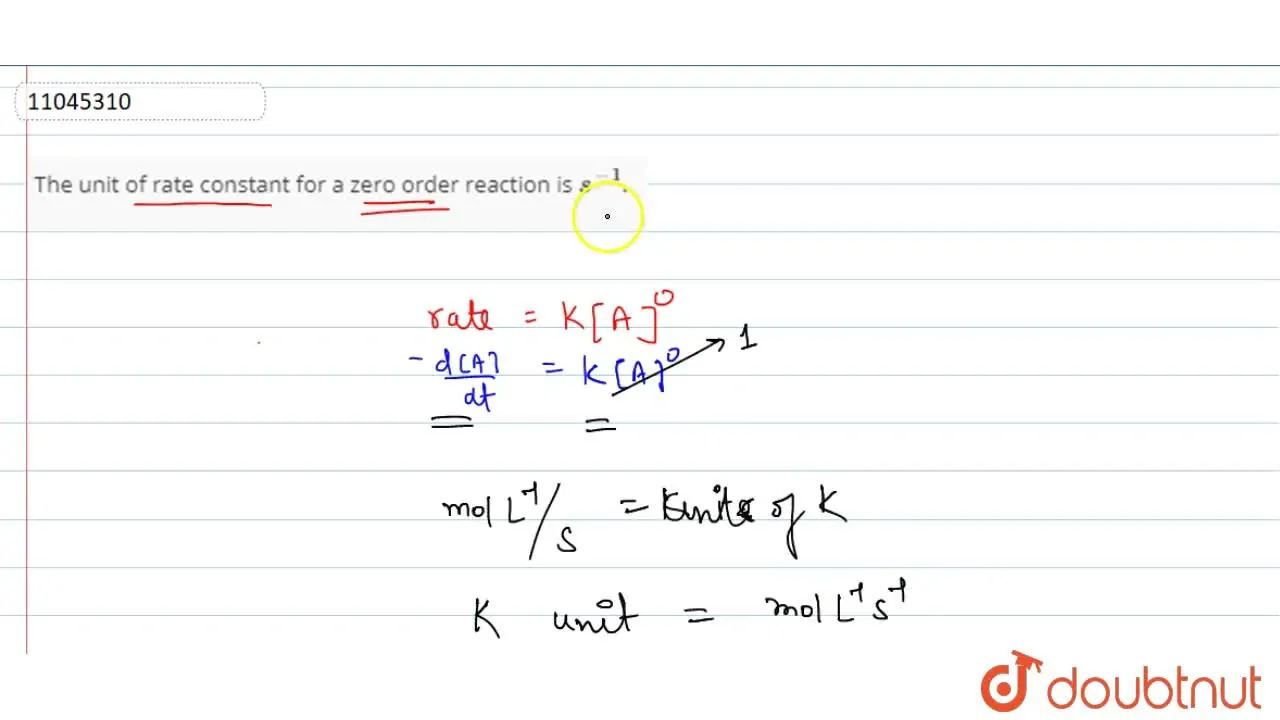 11045310
The unit of rate constant for a zero order reaction is s⁻¹.
rate = K[A]⁰
-d[A]/dt = K[A]⁰ 1
mol L⁻¹/s = units of K
K unit = mol L⁻¹ s⁻¹
doubtnut